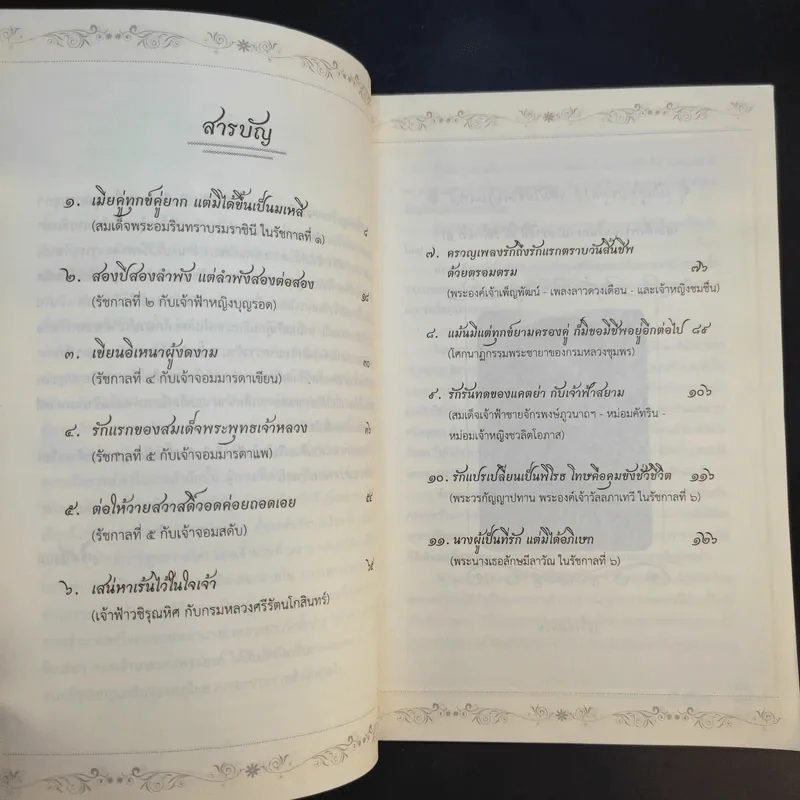 สารบัญ
๑. เมียคู่ทุกข์คู่ยาก แต่มิได้ขึ้นเป็นมเหสี ๘
(สมเด็จพระอมรินทราบรมราชินี ในรัชกาลที่ ๑)
๒. สองปีสองลำพัง แต่ลำพังสองต่อสอง
(รัชกาลที่ ๒ กับเจ้าฟ้าหญิงบุญรอด)
๓. เขียนอิเหนาผู้งดงาม
(รัชกาลที่ ๔ กับเจ้าจอมมารดาเขียน)
๔. รักแรกของสมเด็จพระพุทธเจ้าหลวง
(รัชกาลที่ ๕ กับเจ้าจอมมารดาแพ)
๕. ต่อให้วายสวาสดิ์วอดค่อยถอดเอย
(รัชกาลที่ ๕ กับเจ้าจอมสดับ)
๖. เสน่หาเร้นไว้ในใจเจ้า
(เจ้าฟ้าวชิรุณหิศ กับกรมหลวงศรีรัตนโกสินทร์)
๗. ครวญเพลงรักถึงรักแรกตราบวันสิ้นชีพ
ด้วยตรอมตรม ๗๖
(พระองค์เจ้าเพ็ญพัฒน์ - เพลงลาวดวงเดือน - และเจ้าหญิงชมชื่น)
๘. แม้นมีแต่ทุกข์ยามครองคู่ ก็มิขอมีชีพอยู่อีกต่อไป ๘๙
(โศกนาฏกรรมพระชายาของกรมหลวงชุมพร)
๙. รักรันทดของแคตย่า กับเจ้าฟ้าสยาม ๑๐๖
(สมเด็จเจ้าฟ้าชายจักรพงษ์ภูวนาถฯ - หม่อมคัทริน -
หม่อมเจ้าหญิงชวลิตโอภาส)
๑๐. รักแปรเปลี่ยนเป็นพิโรธ โทษคือคุมขังชั่วชีวิต ๑๑๖
(พระวรกัญญาปทาน พระองค์เจ้าวัลลภาเทวี ในรัชกาลที่ ๖)
๑๑. นางผู้เป็นที่รัก แต่มิได้อภิเษก ๑๒๖
(พระนางเธอลักษมีลาวัณ ในรัชกาลที่ ๖)